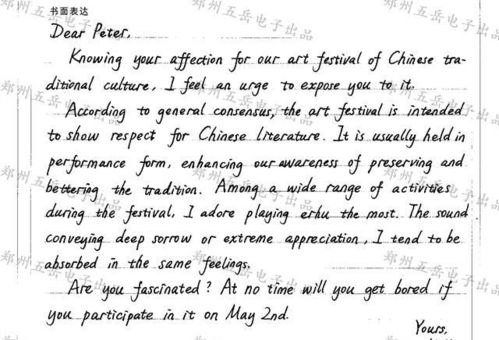 书面表达
Dear Peter,
Knowing your affection for our art festival of Chinese tra-
ditional culture, I feel an urge to expose you to it.
According to general consensus, the art festival is intended
to show respect for Chinese literature. It is usually held in
performance form, enhancing our awareness of preserving and
bettering the tradition. Among a wide range of activities
during the festival, I adore playing erhu the most. The sound
conveying deep sorrow or extreme appreciation, I tend to be
absorbed in the same feelings.
Are you fascinated? At no time will you get bored if
you participate in it on May 2nd.
Yours,
郑州五岳电子出品